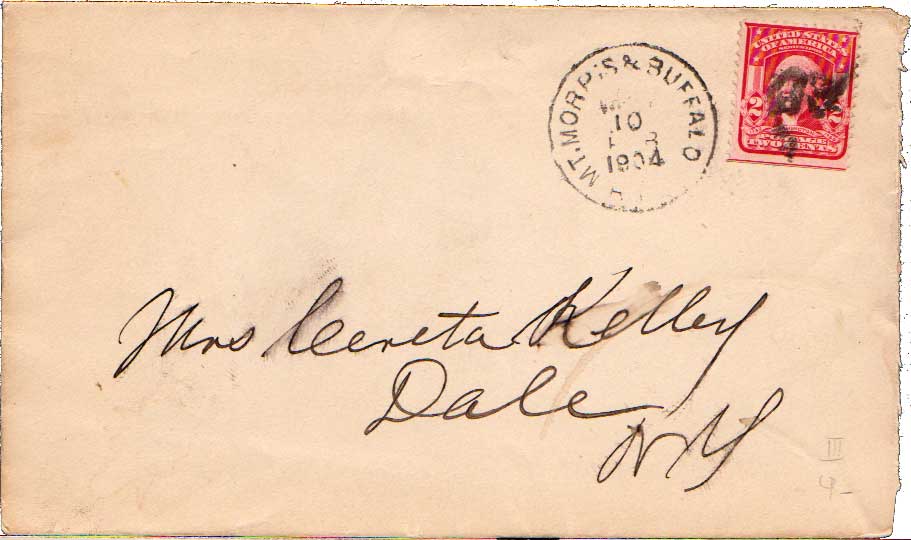 MT. MORRIS & BUFFALO
10
1904
UNITED STATES
OF AMERICA
2 2
TWO CENTS
Mrs Cereta Kelley
Dale
N Y
III